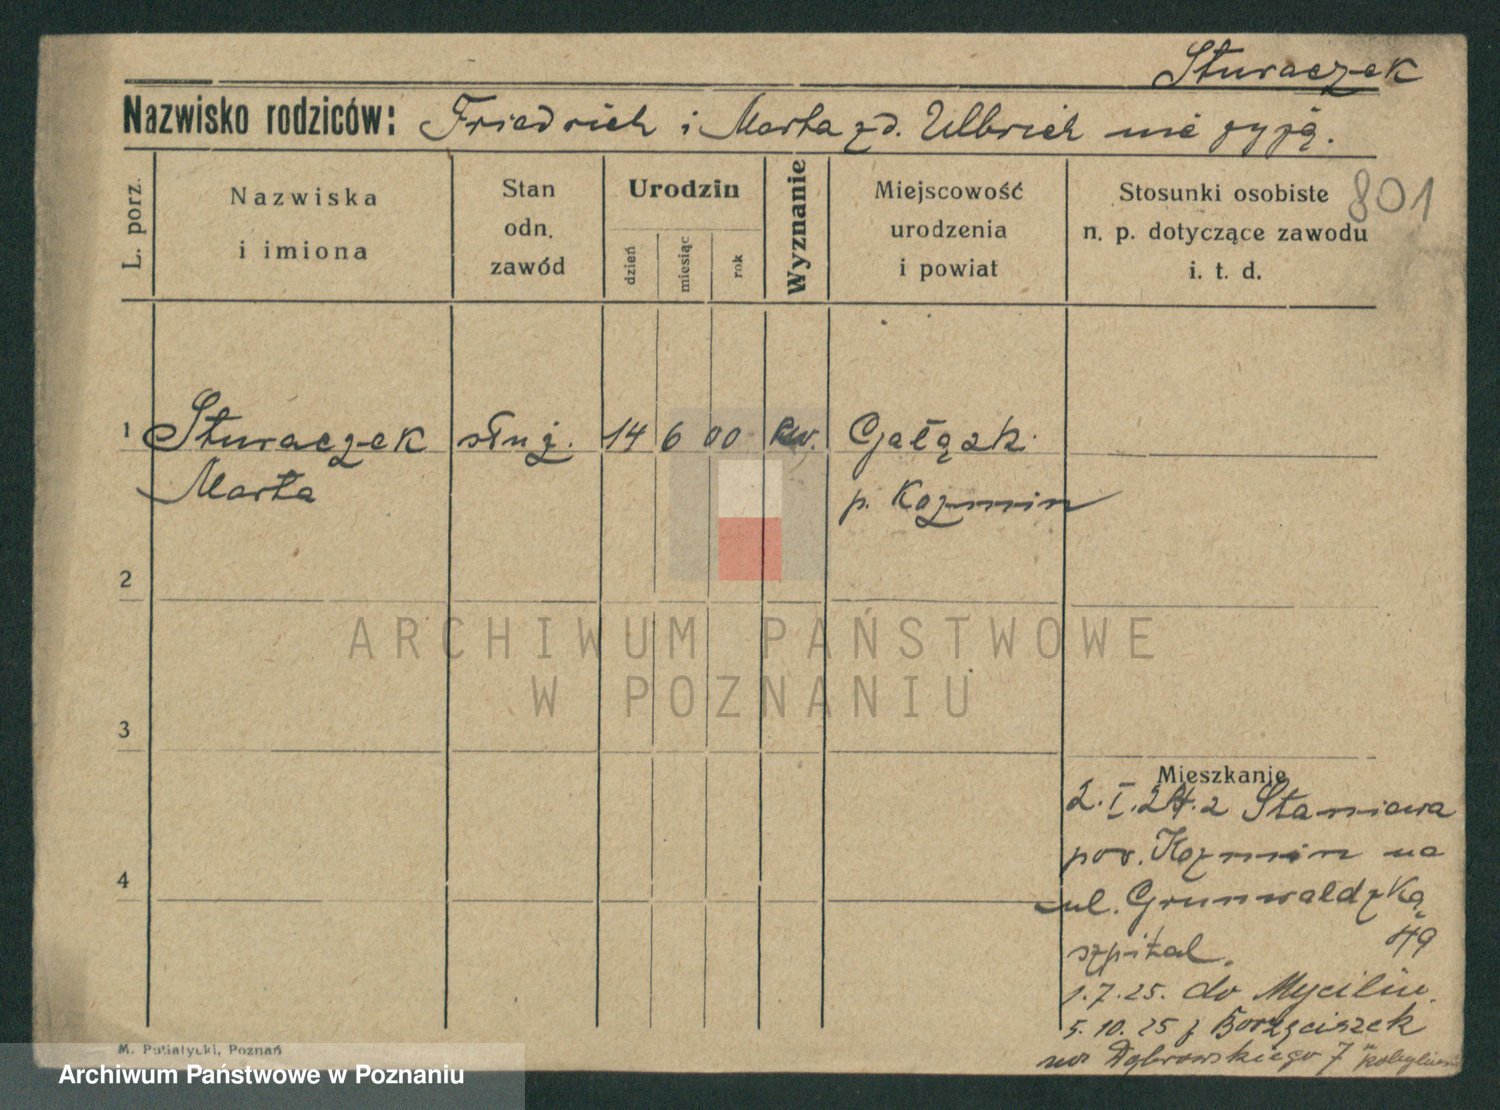 Sturaczek
Nazwisko rodziców: Friedrich i Marta zd. Ulbrich nie żyją.
801
L. porz.
Nazwiska i imiona
Stan odn. zawód
Urodzin
dzień
miesiąc
rok
Wyznanie
Miejscowość urodzenia i powiat
Stosunki osobiste n. p. dotyczące zawodu i. t. d.
1 Sturaczek służ. 14 6 00 ew. Gałązk.
Marta p. Kozmin
2
3
4
ARCHIWUM PAŃSTWOWE
W POZNANIU
Mieszkanie
2.I.24. z Staniewa
pow. Kozmin na
ul. Grunwaldzką
szpital. 49
1.7.25. do
5.10.25 z Borzęciszek
na Dąbrowskiego 7
M. Putiatycki, Poznań
Archiwum Państwowe w Poznaniu